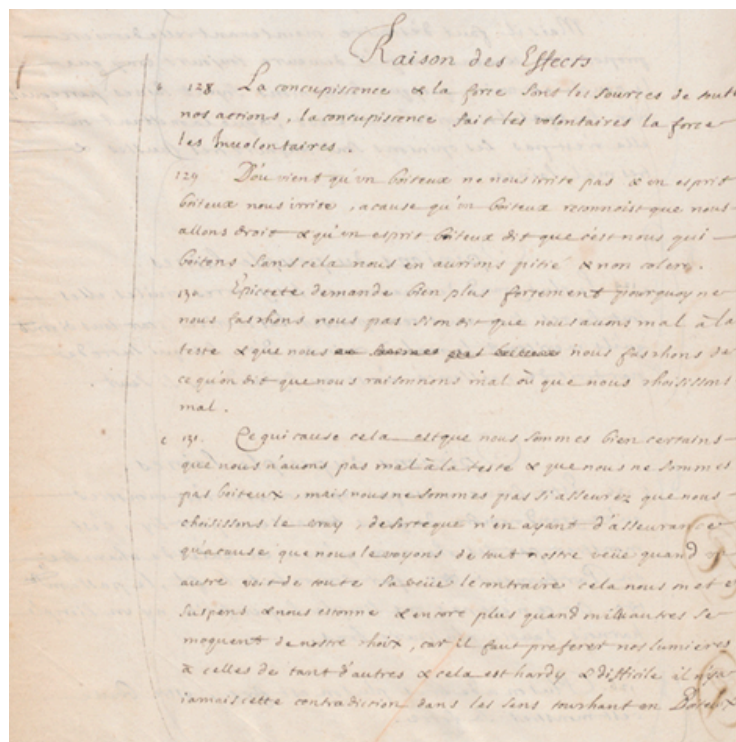 Raison des Effects
128 La concupiscence & la force sont les sources de toutes
nos actions, la concupiscence fait les volontaires la force
les Involontaires.
129 D'où vient qu'un boiteux ne nous irrite pas & un esprit
boiteux nous irrite, acause qu'un boiteux reconnoist que nous
allons droit & qu'un esprit boiteux dit que c'est nous qui
boitons sans cela nous en aurions pitié & non colere.
130 Epictete demande bien plus fortement pourquoy ne
nous faschons nous pas si on dit que nous avons mal à la
teste & que nous nous faschons de
ce qu'on dit que nous raisonnons mal ou que nous choisissons
mal.
c 131. Ce qui cause cela est que nous sommes bien certains
que nous n'avons pas mal à la teste & que nous ne sommes
pas boiteux, mais nous ne sommes pas si asseurez que nous
choisissons le vray, de sorte que n'en ayant d'asseurance
qu'acause que nous le voyons de tout nostre veüe quand un
autre voit de toute sa veüe le contraire cela nous met en
suspens & nous estonne & encore plus quand mille autres se
moquent de nostre choix, car il faut preferer nos lumieres
à celles de tant d'autres & cela est hardy & difficile il n'y a
iamais cette contradiction dans les sens touchant un Boiteux